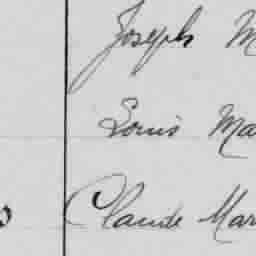 Joseph M
Louis Ma
Claude Mar